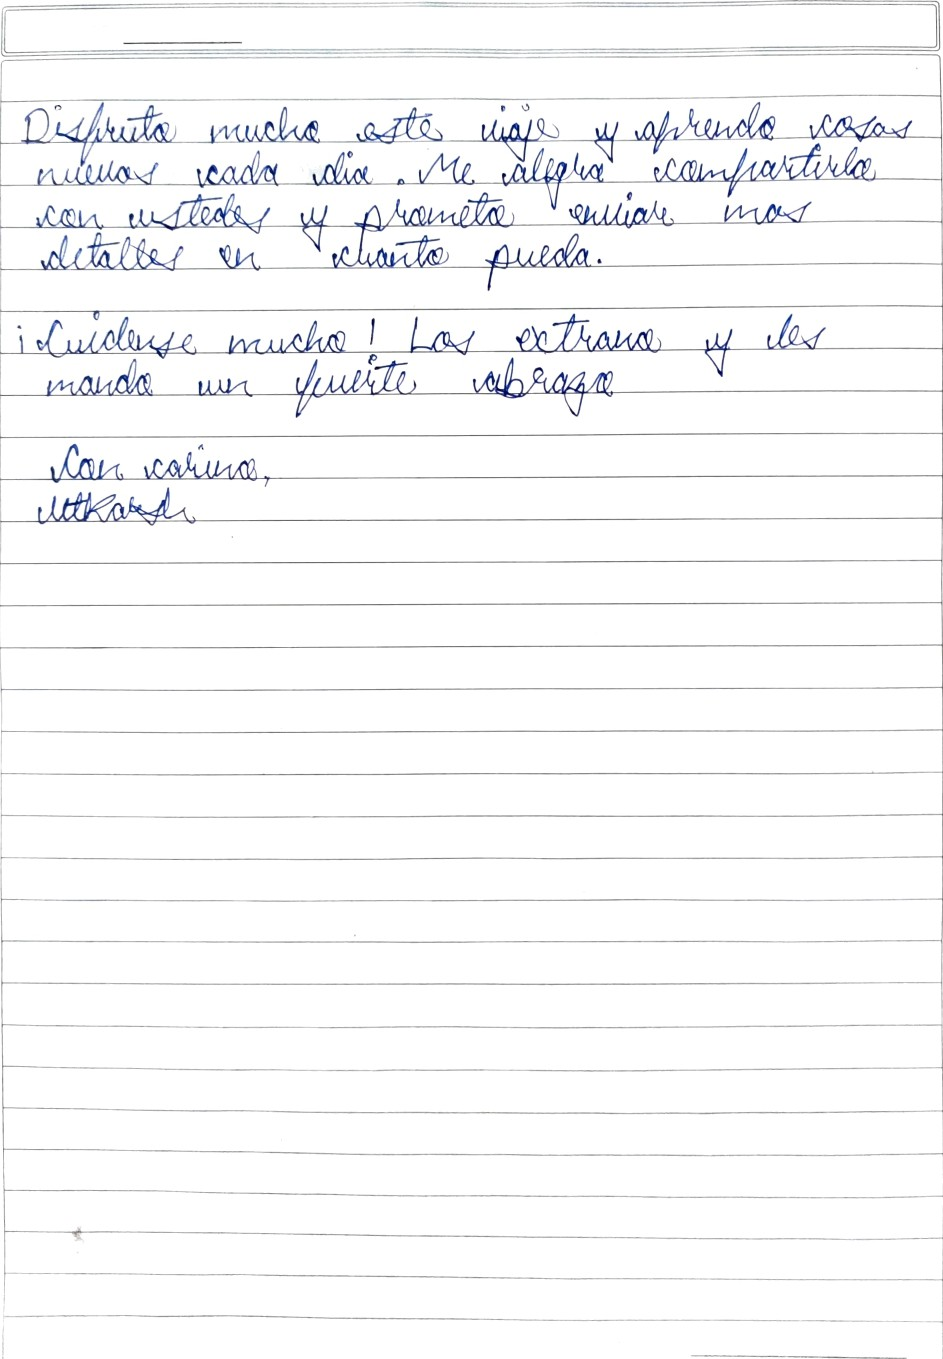 Disfruto mucho este viaje y aprendo cosas
nuevas cada dia. Me alegra compartirlo
con ustedes y prometo enviar mas
detalles en cuanto pueda.
¡Cuidense mucho! Los extrano y les
mando un fuerte abrazo
Con carino,
Utkarsh